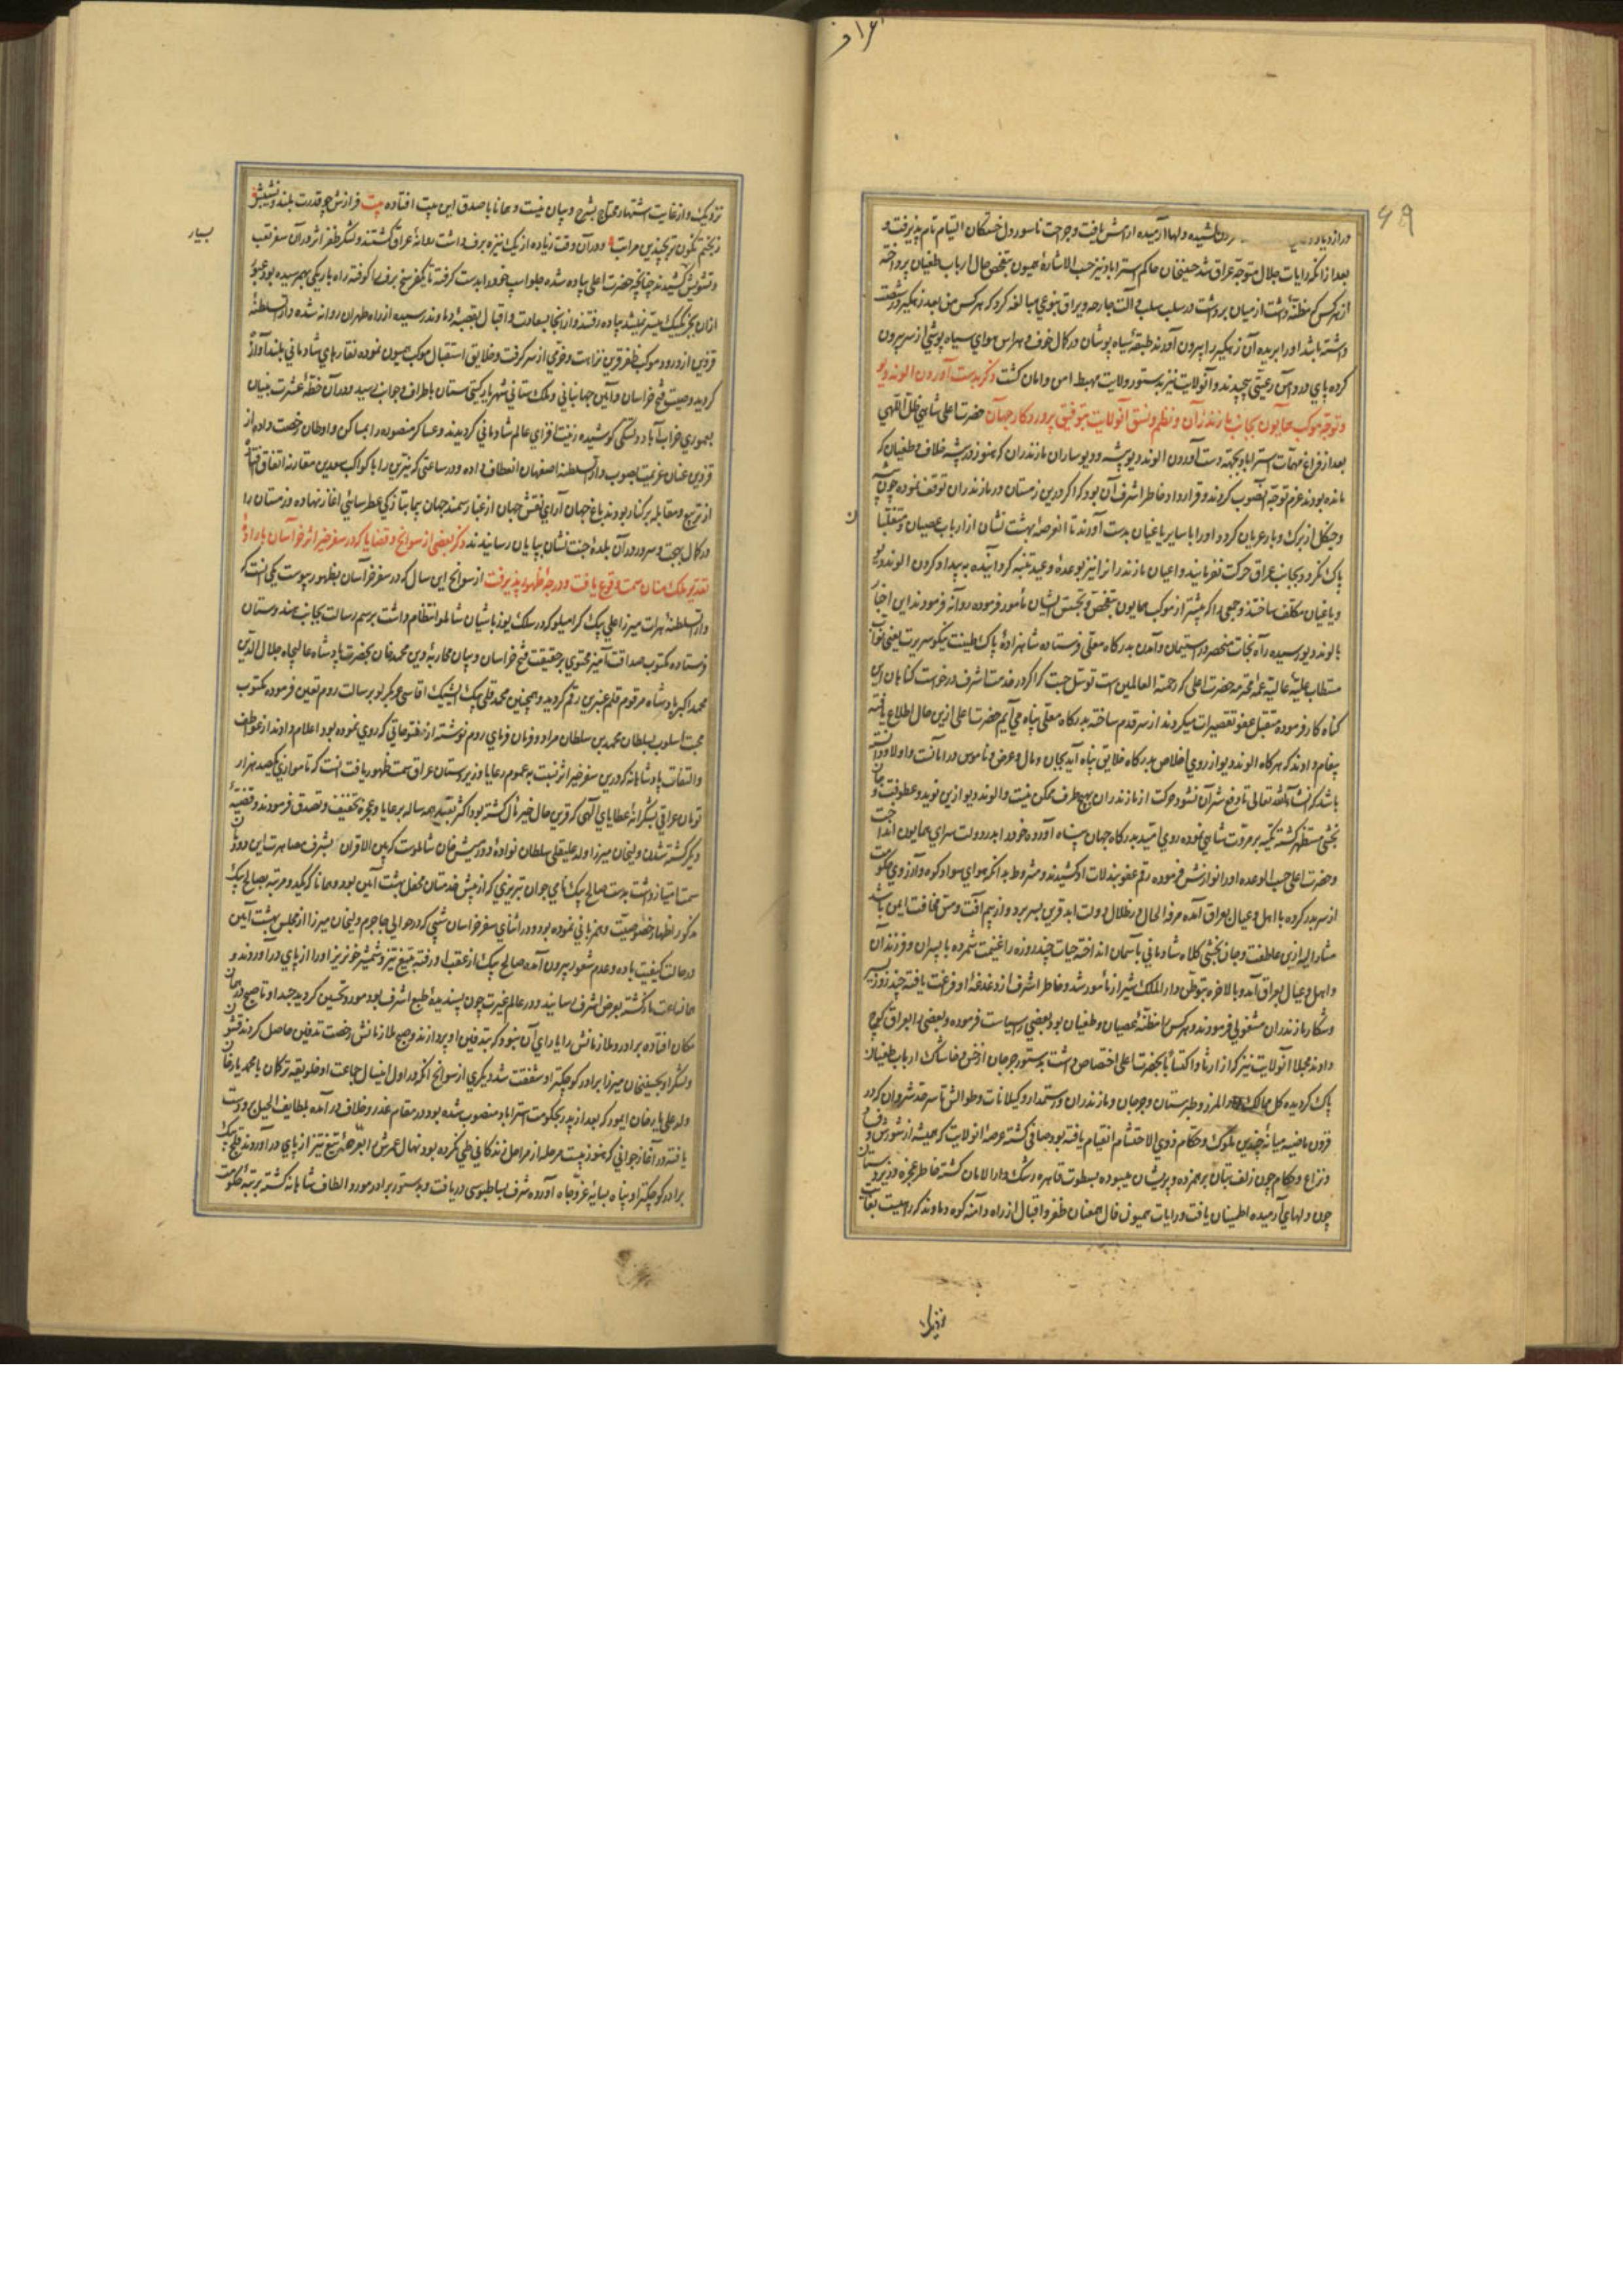 ۱۶ و
۶۹
دلها آرمیده آرامش یافت و جراحت ناسور دل خستکان التیام تام پذیرفت و
بعد از آنکه رایات جلال متوجه عراق شد حسینخان حاکم استراباد نیز حسب الاشارۀ همیون بتفحص حال ارباب طغیان پرداخته
از هر کس که مظنۀ داشت از میان برداشت و در سلب سلب و آلت جارحه و یراق بنوعی مبالغه کرد که هر کس من بعد زهکیر در شست
داشته باشد او را بریده آن زهکیر را بیرون آورند طبقۀ سیاه پوشان در کمال خوف و هراس هوای سیاه پوشی از سر بیرون
کرده پای در دامن رعیتی پیچیدند و آنولایت نیز بدستور ولایت مهبط امن و امان کشت ذکر بدست آوردن الوند دیو
و توجه موکب همایون بجانب مازندران و نظم و نسق آنولایت بتوفیق پروردکار جهان حضرت اعلی شاهی ظل اللهی
بعد از فراغ مهمات استراباد بجهة دست آوردن الوند دیو و بقیه دیوساران مازندران که هنوز در بیشه خلاف و طغیان
مانده بودند عزم توجه آنصوب کردند و قرارداد خاطر اشرف آن بود که اکر درین زمستان در مازندران توقف نموده چون بیشه
و جنکل از برک و بار عریان کردد او را با سایر یاغیان بدست آورند تا آنعرصۀ بهشت نشان از ارباب عصیان و متغلبان
پاک نکردد بجانب عراق حرکت نفرمایند و اعیان مازندران را نیز بوعده و وعید متنبه کردانیده به پیدا کردن الوند دیو
و یاغیان مکلف ساختند و جمعی را که پیشتر از موکب همایون بتفحص و تجسس ایشان مأمور فرموده روانه فرمودند این اخبار
بالوند دیو رسیده راه نجات منحصر در استیمان و آمدن بدرکاه معلی فرستاده شاهزادۀ پاک طینت نیکو سیرت یعنی نواب
مستطاب علیۀ عالیه عمۀ محترمه حضرت اعلی که رحمة العالمین است توسل جست که اکر در خدمت اشرف درخواست کناهان این
کناه کار فرموده متقبل عفو تقصیرات میکردند از سر قدم ساخته بدرکاه معلی پناه می آیم حضرت اعلی ازین حال اطلاع یافته
پیغام دادند که هر کاه الوند دیو از روی اخلاص بدرکاه خلایق پناه آید بجان و مال و عرض و ناموس در امانست و اولا دانسته
باشد که انشاءالله تعالی تا دفع شر آن نشود حرکت از مازندران بهیچ طرف ممکن نیست و الوند دیو ازین نوید و عطوفت و جان
بخشی مستظهر کشته تکیه بر مروت شاهی نموده روی امید بدرکاه جهان پناه آورده خود را بدر دولت سرای همایون انداخت
و حضرت اعلی حسب الوعده او را نوازش فرموده رقم عفو بر زلات او کشیدند و مشروط بدانکه هوای سوادکوه و آرزوی حکومت
از سر بدر کرده با اهل و عیال بعراق آمده مرفه الحال در ظلال دولت ابد قرین بسر برد و از بیم آفت و سمت مخافت ایمن باشد
مشار الیه ازین عاطفت و جان بخشی کلاه شادمانی بآسمان انداخته حیات چند روزه را غنیمت شمرده با پسران و فرزندان
و اهل و عیال بعراق آمد و بالاخره بتوطن دار الملک شیراز مأمور شد و خاطر اشرف از دغدغۀ او فراغت یافته چند روز بسیر
و شکار مازندران مشغولی فرمودند و هر کس را مظنۀ عصیان و طغیان بود بعضی را سیاست فرموده و بعضی را بعراق کوچ
دادند مجملا آنولایت نیز که از ارثا و اکتسابا بحضرت اعلی اختصاص داشت بدستور جرجان از خس و خاشاک ارباب طغیان
پاک کردیده کل ممالک دار المرز و طبرستان و جرجان و مازندران و رستمدار و کیلانات و طوالش تا سرحد شروان که در
قرون ماضیه میانۀ چندین ملوک و حکام ذوی الاحتشام انقسام یافته بود صافی کشته عرصۀ آنولایت که همیشه از شورش و فساد
و نزاع حکام چون زلف بتان برهم زده و پریشان میبود به سطوت قاهره رشک دار الامان کشته خاطر عجزه و زیردستان
چون دلهای آرمیده اطمینان یافت و رایات همیون فال همعنان ظفر و اقبال از راه دامنه کوه دماوند که از هیبت بعقاب
نزدیکست و از غایت اشتهار محتاج بشرح و بیان نیست و همانا با صدق این بیت افتاده بیت فرازش چو قدرت بلند و نشیبش
ز بختم نکون تر بچندین مراتب و در آن وقت زیاده از یک نیزه برف داشت روانۀ عراق کشتند و لشکر ظفر اثر در آن سفر تعب
بسیار
و تشویش کشیدند چنانچه حضرت اعلی پیاده شده جلو اسب خود را بدست کرفته تا یکفرسخ برفها کوفته راه باریکی بهم رسیده بود عبور
از آن بجز یکیک میسر نمیشد پیاده رفتند و از آنجا بسعادت و اقبال بقصبۀ دماوند رسیده از راه طهران روانه شده دار السلطنۀ
قزوین از ورود موکب ظفر قرین نزاهت و خرمی از سر کرفت و خلایق استقبال موکب همیون نموده نقارهای شادمانی بلند آوازه
کردید و صیت فتح خراسان و آیین جهانبانی و ملک ستانی شهریار کیتی ستان باطراف و جوانب رسید و در آن خطۀ عشرت بنیان
بمعموری خراب آباد دلتنکی کوشیده زینت افزای عالم شادمانی کردیدند و عساکر منصوره را بمساکن و اوطان رخصت داده از
قزوین عنان عزیمت بصوب دار السلطنه اصفهان انعطاف داده و در ساعتی که نیرین را با کواکب سعدین مقارنه اتفاق افتاده
از تربیع و مقابله برکنار بودند باغ جهان آرای نقش جهان از غبار سمند جهان پیما بتازکی عطرسائی آغاز نهاده و زمستان را
در کمال بهجت و سرور در آن بلدۀ جنت نشان بپایان رسانیدند ذکر بعضی از سوانح و قضایا که در سفر خیر اثر خراسان بارادۀ
تقدیر ملک منان سمت وقوع یافت و درجۀ ظهور پذیرفت از سوانح این سال که در سفر خراسان بظهور پیوست یکی آنست که
دار السلطنۀ هرات میرزا علی بیک کرامیلو که در سلک یوزباشیان شاملو انتظام داشت برسم رسالت بجانب هندوستان
فرستاده مکتوب صداقت آمیز محتوی بر حقیقت فتح خراسان و بیان محاربۀ دین محمد خان بحضرت پادشاه عالیجاه جلال الدین
محمد اکبر پادشاه مرقوم قلم عنبرین رقم کردید و همچنین محمد قلی بیک ایشیک اقاسی عربکرلو برسالت روم تعیین فرموده مکتوب
محبت اسلوب بسلطان محمد بن سلطان مراد و فرمان فرمای روم نوشته از فتوحاتی که روی نموده بود اعلام دادند از عواطف
و التفات پادشاهانه که درین سفر خیر اثر نسبت به عموم رعایا و زیردستان عراق سمت ظهور یافت آنست که تا موازی یکصد هزار
تومان عراقی بشکرانۀ عطایای آلهی که قرین حال خیر مآل کشته بود اکثر بقیه همه ساله برعایا و عجزه تخفیف و تصدق فرمودند و قضیۀ
دیکر کشته شدن ولیخان میرزا ولد علیقلی سلطان نوادۀ دورمیش خان شاملوست که بین الاقران بشرف مصاهرت این دودمان
سمت امتیاز داشت بدست صالح بیک نامی جوان تبریزی که از پیش خدمتان محفل بهشت آیین بود و همانا که یکدو مرتبه بصالح بیک
مذکور اظهار خصوصیت و همزبانی نموده بود و در اثنای سفر خراسان شبی که در حوالی جاجرم ولیخان میرزا از مجلس بهشت آیین
در حالت کیفیت باده و عدم شعور بیرون آمده صالح بیک از عقب او رفته بتیغ تیز و شمشیر خونریز او را از پای در آوردند و
همانساعت ماکذشته بعرض اشرف رسانیدند و در عالم غیرت چون پسندیدۀ طبع اشرف بود مورد تحسین کردید جسد او تا صبح در همان
مکان افتاده برادر و ملازمانش را یارای آن نبود که بتدفین او پردازند و صبح ملازمانش رخصت تدفین حاصل کردند قشون
و لشکر او بحسینخان میرزا برادر کوچکتر او شفقت شد دیکری از سوانح آنکه در اول اینسال جماعت اوخلو بقیه ترکمان با محمد یار خان
ولد علی یار خان ایمور که بعد از پدر بحکومت استراباد منصوب شده بود در مقام غدر و خلاف در آمده بلطایف الحیل بر او دست
یافته در آغاز جوانی که هنوز بیست مرحله از مراحل زندکانی طی نکرده بود نهال عمرش را بعرصۀ تیغ تیز از پای در آوردند قلیج بیک
برادر کوچکتر او پناه بسایۀ عز و جاه آورده شرف بساط بوسی دریافت و بدستور برادر مورد الطاف شاهانه کشته برتبۀ حکومت
نزدیک